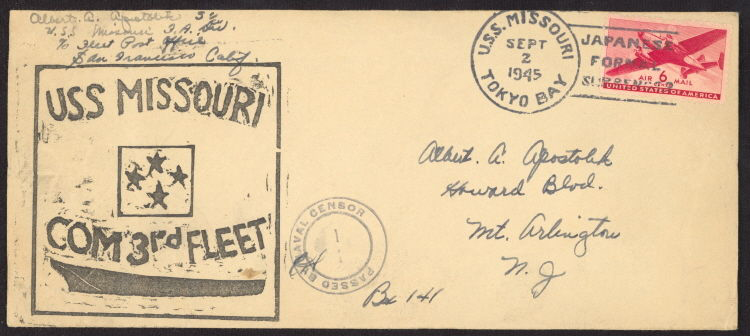 Albert. A. Apostolik S 2/c
U.S.S Missouri F.A. Div.
% Fleet Post Office
San Francisco Calif.
USS MISSOURI
COM 3rd FLEET
U.S.S. MISSOURI
SEPT
2
1945
TOKYO BAY
JAPANESE
FORMAL
SURRENDER
AIR 6 MAIL
UNITED STATES OF AMERICA
Albert. A. Apostolik
Howard Blvd.
Mt. Arlington
N. J
PASSED BY NAVAL CENSOR
Bx 141